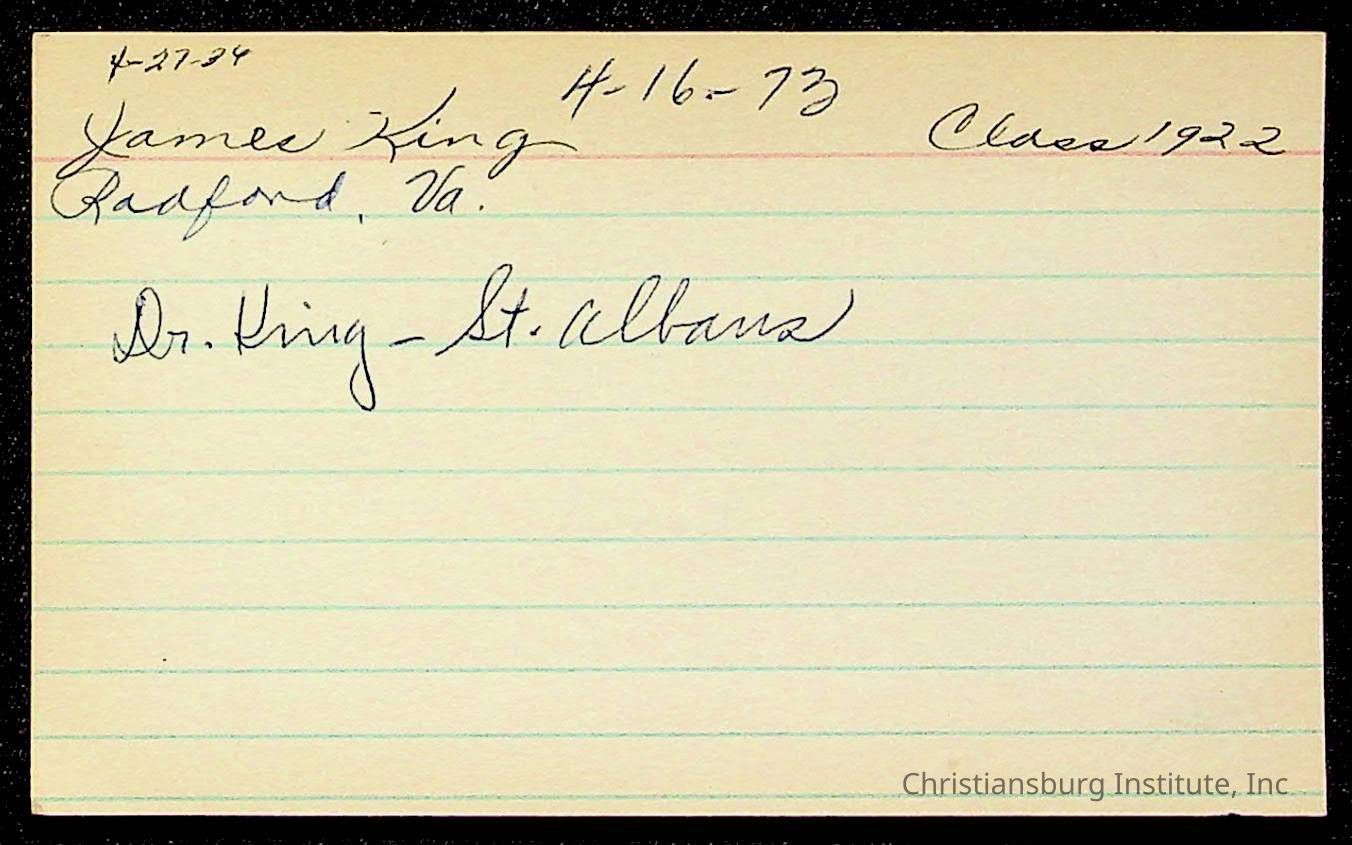 4-27-34
4-16-73
James King Class 1922
Radford, Va.
Dr. King - St. Albans
Christiansburg Institute, Inc